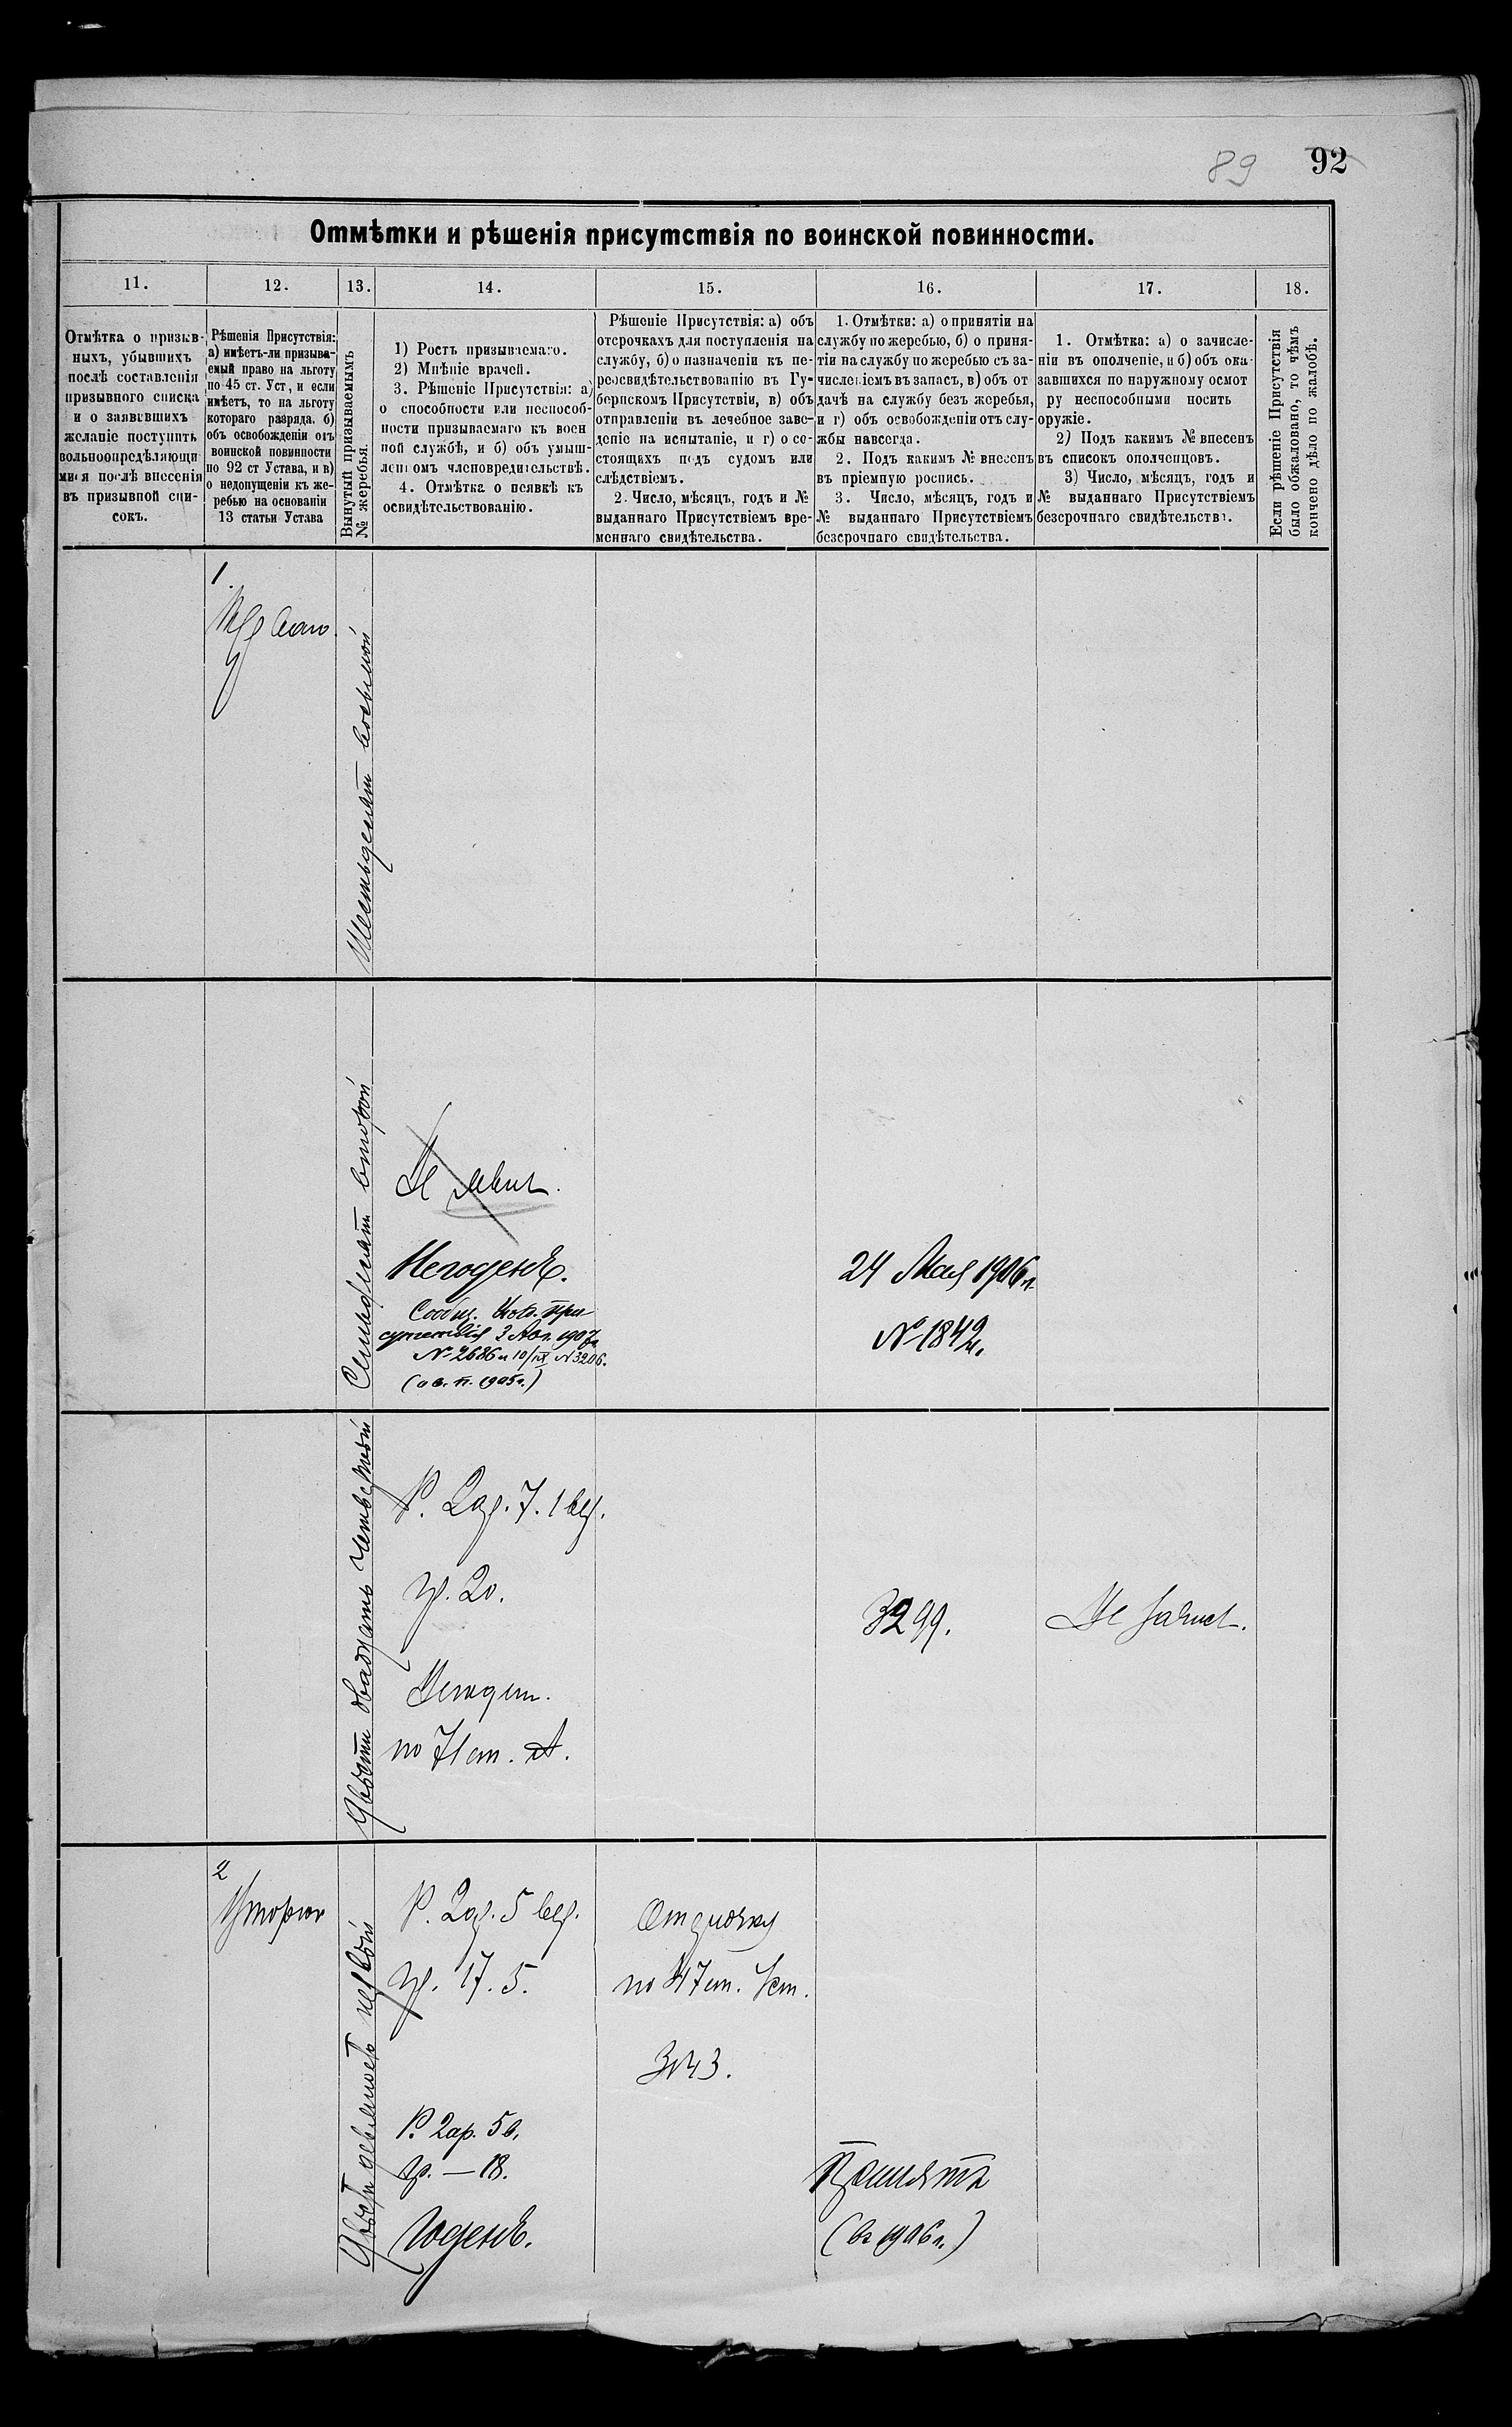 89 92
Отмѣтки и рѣшенія присутствія по воинской повинности.
11. 12. 13. 14. 15. 16. 17. 18.
Отмѣтка о призыв-
ныхъ, убывшихъ
послѣ составленія
призывного списка
и о заявившихъ
желаніе поступить
вольноопредѣляющи
мися послѣ внесенія
въ призывной спи-
сокъ.
Рѣшенія Присутствія:
а) имѣетъ-ли призыва-
емый право на льготу
по 45 ст. Уст, и если
имѣетъ, то на льготу
котораго разряда, б)
объ освобожденіи отъ
воинской повинности
по 92 ст Устава, и в)
о недопущеніи къ же-
ребью на основаніи
13 статьи Устава
Вынутый призываемымъ
№ жеребья.
1) Ростъ призываемаго.
2) Мнѣніе врачей.
3. Рѣшеніе Присутствія: а)
о способности или неспособ-
ности призываемаго къ воен
ной службѣ, и б) объ умыш-
леномъ членовредительствѣ.
4. Отмѣтка о неявкѣ къ
освидѣтельствованію.
Рѣшеніе Присутствія: а) объ
отсрочкахъ для поступленія на
службу, б) о назначеніи къ пе-
реосвидѣтельствованію въ Гу-
бернскомъ Присутствіи, в) объ
отправленіи въ лечебное заве-
деніе на испытаніе, и г) о со-
стоящихъ подъ судомъ или
слѣдствіемъ.
2. Число, мѣсяцъ, годъ и №
выданнаго Присутствіемъ вре-
меннаго свидѣтельства.
1. Отмѣтки: а) о принятіи на
службу по жеребью, б) о приня-
тіи на службу по жеребью съ за-
численіемъ въ запасъ, в) объ от
дачѣ на службу безъ жеребья,
и г) объ освобожденіи отъ слу-
жбы навсегда.
2. Подъ какимъ № внесенъ
въ пріемную роспись.
3. Число, мѣсяцъ, годъ и
№ выданнаго Присутствіемъ
безсрочнаго свидѣтельства.
1. Отмѣтка: а) о зачисле-
ніи въ ополченіе, и б) объ ока
завшихся по наружному осмот
ру неспособными носить
оружіе.
2) Подъ какимъ № внесенъ
въ списокъ ополченцовъ.
3) Число, мѣсяцъ, годъ и
№ выданнаго Присутствіемъ
безсрочнаго свидѣтельства.
Если рѣшеніе Присутствія
было обжаловано, то чѣмъ
кончено дѣло по жалобѣ.
1.
Шестьдесят восьмой
Семьдесят второй
Не явил.
Негоденъ.
Сообщ. при-
сутствія 3 Авг. 1907г.
№ 2686 и 10/IX № 3206.
(1905г.)
24 Мая 1906г.
№ 1842.
Двѣсти двадцать четвертый
Р. 2 ар. 7. 1 вер.
гр. 20.
Негоден.
по 71 ст. А.
3299.
Не зачисл.
2
Втораго
Двѣсти девяносто первый
Р. 2 ар. 5 вер.
гр. 17. 5.
Отсрочку
по 47 ст. Уст.
3143.
Р. 2 ар. 5 в.
гр. — 18.
Годенъ.
Принятъ
(въ 1906г.)